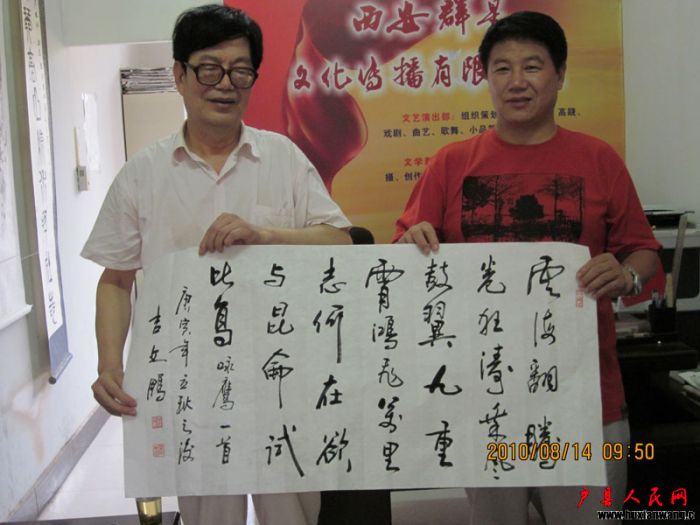 西安群星
文化传播有限
文艺演出部：组织策划
高跷、
戏剧、曲艺、歌舞、小品
文学
摄、创作
云海翻腾
卷狂涛乘风
鼓翼九重
霄鸿飞万里
志何在欲
与昆仑试
比高咏鹰一首
庚寅年
吉文鹏
2010/08/14 09:50
户县人民网
www.huxianwang.c